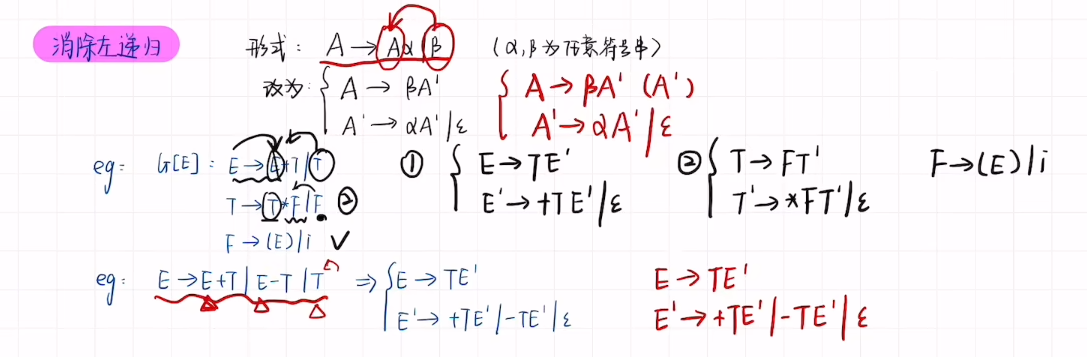 消除左递归
形式： A → Aα|β （α,β为任意符号串）
改为： { A → βA'
A' → αA'|ε
{ A → βA' (A')
A' → αA'|ε
eg: G[E]: E → E+T|T
T → T*F|F ②
F → (E)|i ✓
① { E → TE'
E' → +TE'|ε
② { T → FT'
T' → *FT'|ε
F → (E)|i
eg: E → E+T|E-T|T ⇒ { E → TE'
E' → +TE'|-TE'|ε
E → TE'
E' → +TE'|-TE'|ε